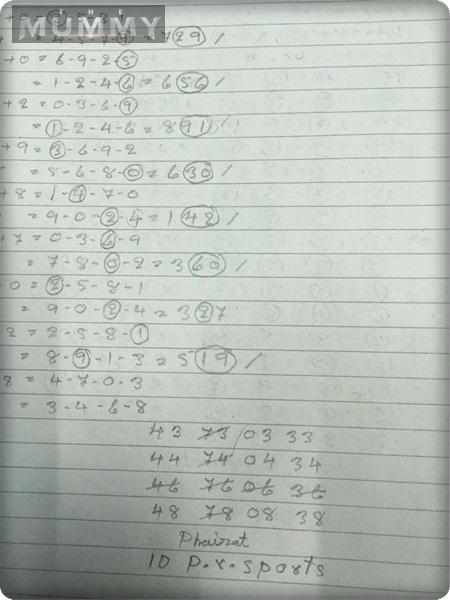 THE
MUMMY
729 /
+0 = 6-9-2-5
= 1-2-4-6 = 656 /
+2 = 0-3-6-9
= 1-2-4-6 = 891 /
+9 = 3-6-9-2
= 5-6-8-0 = 630 /
+8 = 1-4-7-0
= 9-0-2-4 = 142 /
+7 = 0-3-6-9
= 7-8-0-2 = 360 /
0 = 2-5-8-1
= 9-0-2-4 = 327
2 = 2-5-8-1
= 8-9-1-3 = 519 /
8 = 4-7-0-3
= 3-4-6-8
43 73 / 03 33
44 74 04 34
46 76 06 36
48 78 08 38
Phairat
ID P.r.sports